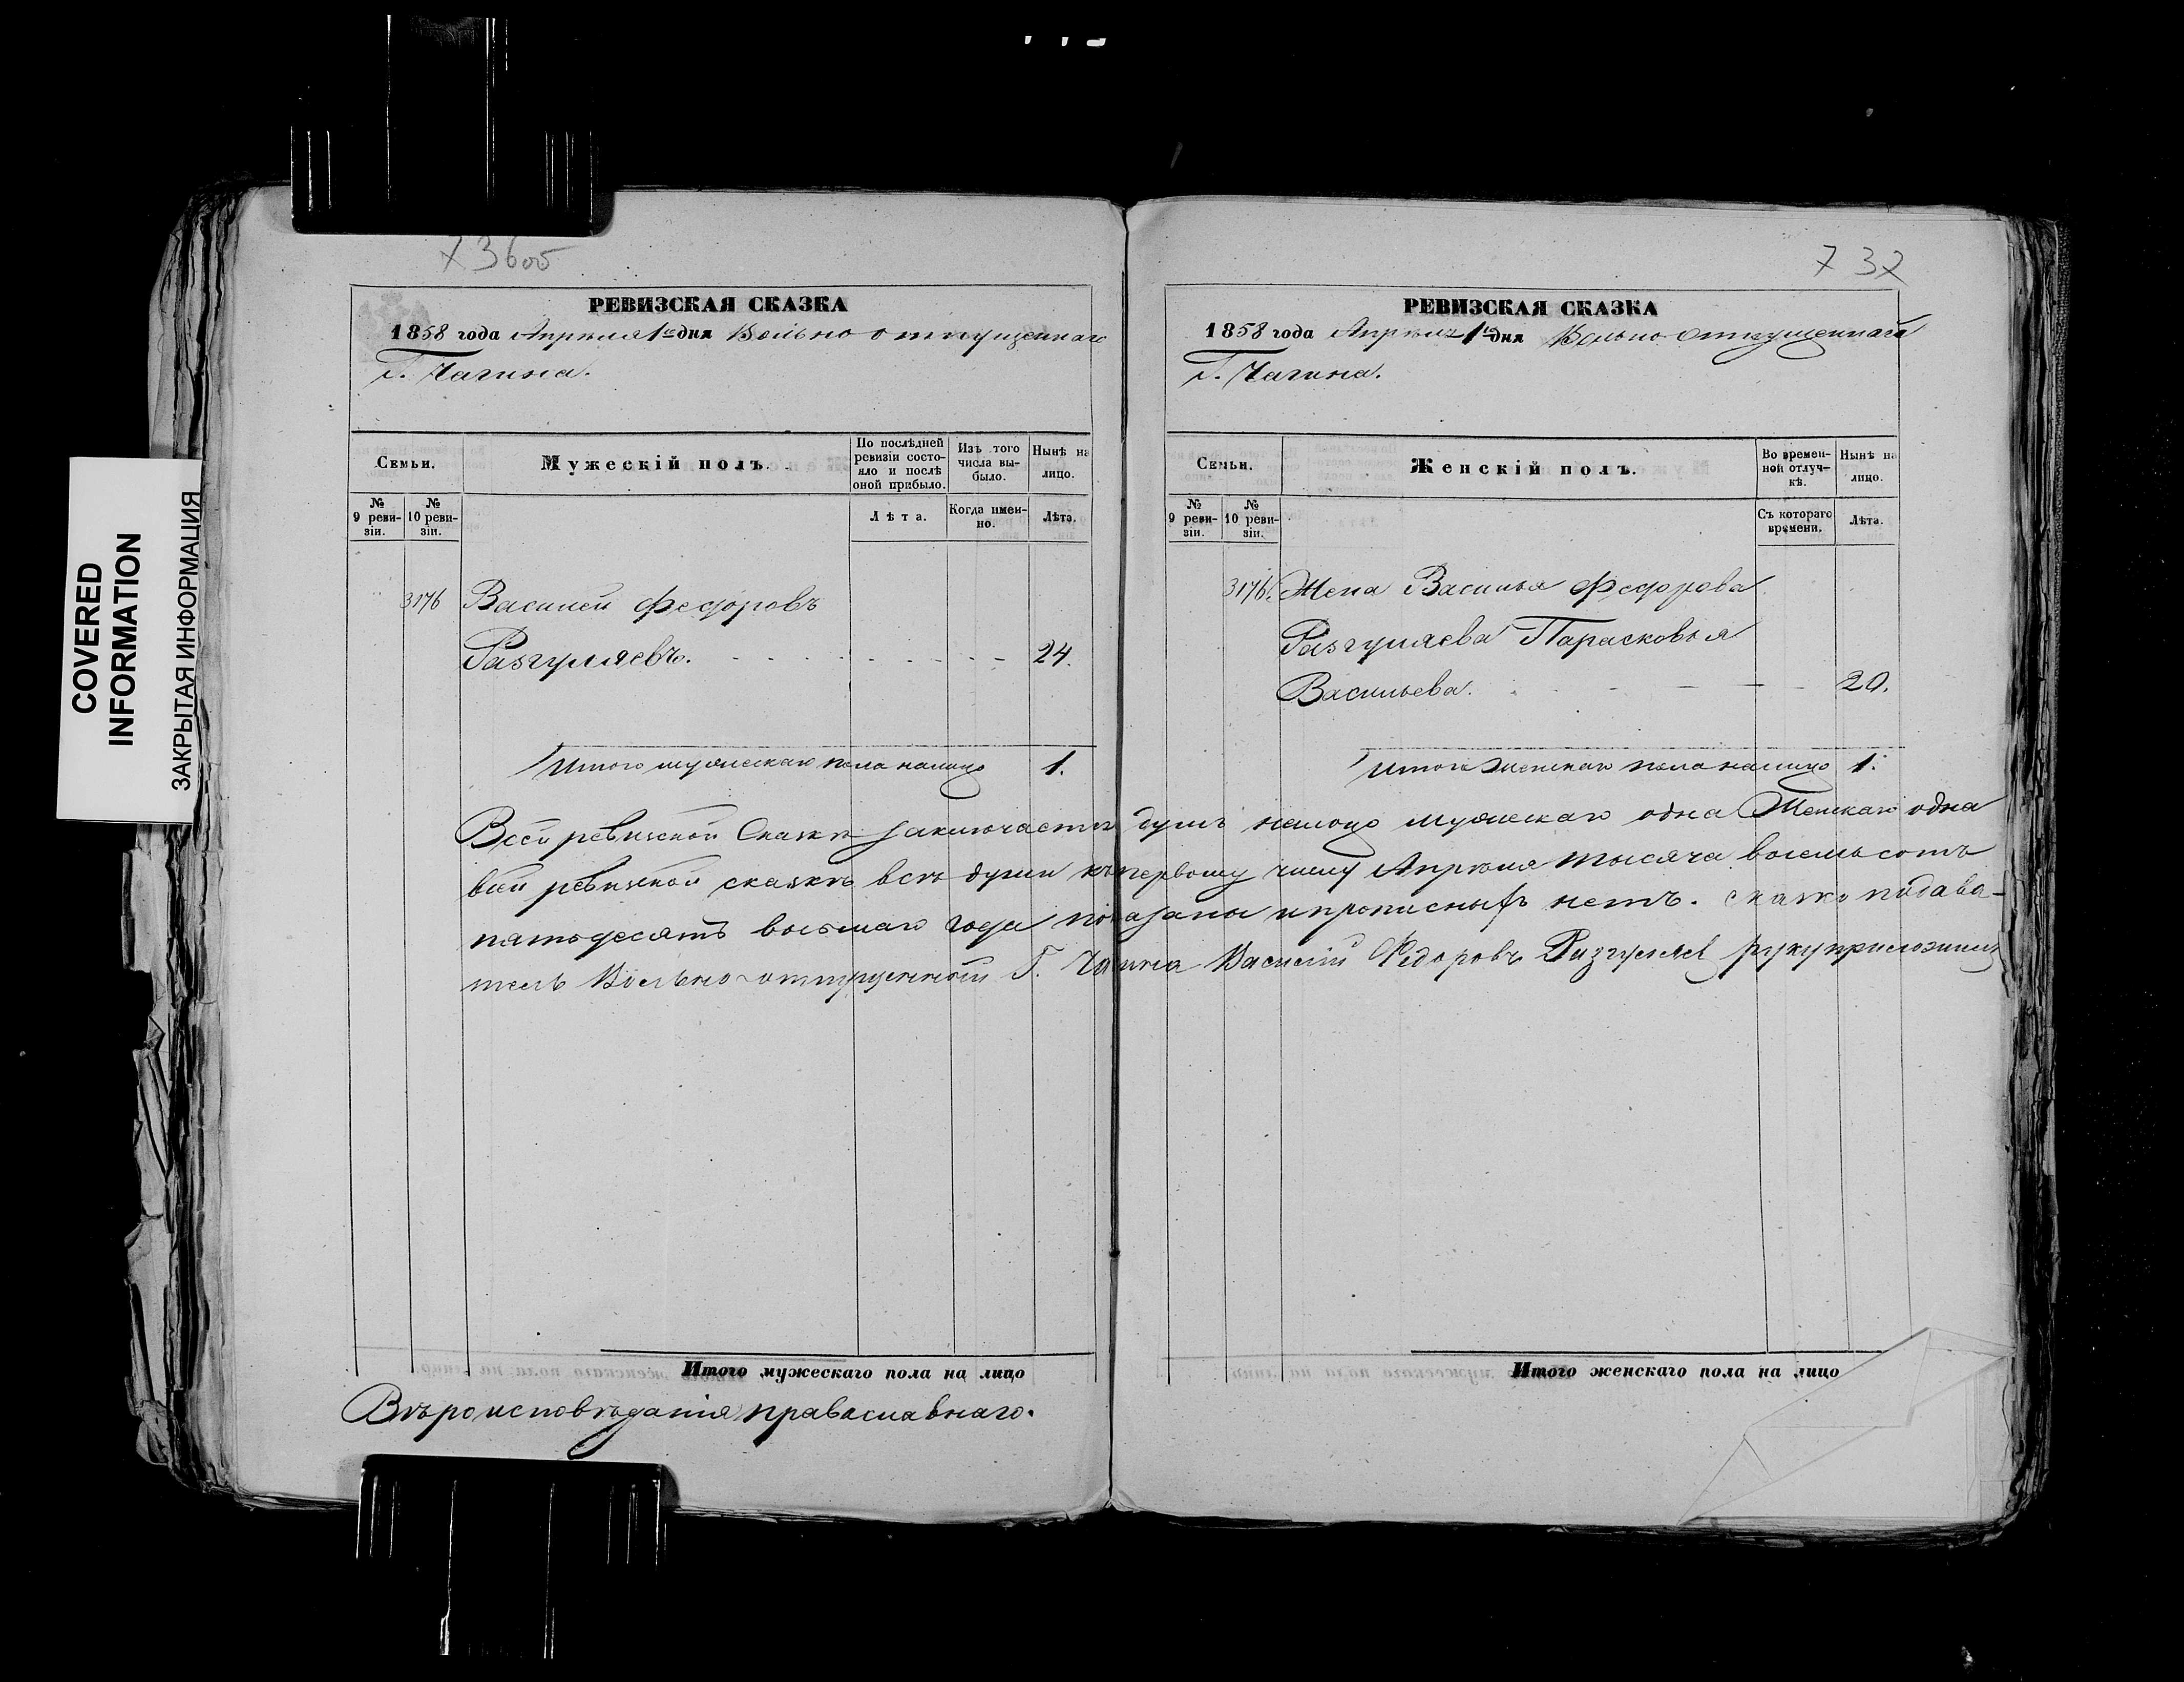 COVERED
INFORMATION
ЗАКРЫТАЯ ИНФОРМАЦИЯ
36об
РЕВИЗСКАЯ СКАЗКА
1858 года Апрѣля 1го дня Вольно отпущеннаго
Г. Чагина.
Семьи.
Мужескій полъ.
По послѣдней ревизіи состояло и послѣ оной прибыло.
Изъ того числа выбыло.
Нынѣ на лицо.
№ 9 ревизіи.
№ 10 ревизіи.
Лѣта.
Когда именно.
Лѣта.
3176 Василей Федоровъ
Разгуляевъ. 24.
Итого мужескаго пола налицо 1.
Итого мужескаго пола на лицо
Вѣроисповѣданія православнаго.
37
РЕВИЗСКАЯ СКАЗКА
1858 года Апрѣля 1го дня Вольно отпущеннаго
Г. Чагина.
Семьи.
Женскій полъ.
Во временной отлучкѣ.
Нынѣ на лицо.
№ 9 ревизіи.
№ 10 ревизіи.
Съ котораго времени.
Лѣта.
3176. Жена Василья Федорова
Разгуляева Парасковья
Васильева. 20.
Итого Женскаго пола налицо 1.
Всей ревизской Сказкѣ заключается душъ налицо мужескаго одна Женскаго одна
всей ревизской сказкѣ всѣ души къ первому числу Апрѣля тысяча восемьсотъ
пятьдесятъ восьмаго года показаны и прописныхъ нетъ. сказко подава-
тель Вольно-отпущенный Г. Чагина Василій Федоровъ Разгуляев руку приложилъ
Итого женскаго пола на лицо